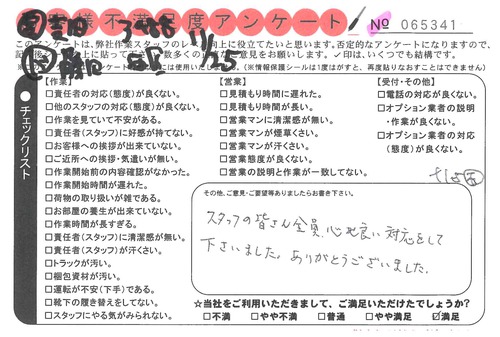 お客様不満足度アンケート
No 065341
11/25
このアンケートは、弊社作業スタッフのレベル向上に役立てたいと思います。否定的なアンケートになりますので、
ご意見をお願いします。✓印は、いくつでも結構です。
(※情報保護シールは1度はがすと、再度貼りなおすことはできません)
チェックリスト
【作業】
□責任者の対応(態度)が良くない。
□他のスタッフの対応(態度)が良くない。
□作業を見ていて不安がある。
□責任者(スタッフ)に好感が持てない。
□お客様への挨拶が出来ていない。
□ご近所への挨拶・気遣いが無い。
□作業開始前の内容確認がなかった。
□作業開始時間が遅れた。
□荷物の取り扱いが雑である。
□お部屋の養生が出来ていない。
□作業時間が長すぎる。
□責任者(スタッフ)に清潔感が無い。
□責任者(スタッフ)が汗くさい。
□トラックが汚い。
□梱包資材が汚い。
□運転が不安(下手)である。
□靴下の履き替えをしてない。
□スタッフにやる気がみられない。
【営業】
□見積もり時間に遅れた。
□見積もり時間が長い。
□営業マンに清潔感が無い。
□営業マンが煙草くさい。
□営業マンが汗くさい。
□営業態度が良くない。
□営業の説明と作業が一致してない。
【受付・その他】
□電話の対応が良くない。
□オプション業者の説明
・作業が良くない。
□オプション業者の対応
(態度)が良くない。
その他、ご意見・ご要望等ありましたらお書き下さい。
スタッフの皆さん全員、心地良い対応をして
下さいました。ありがとうございました。
☆当社をご利用いただきまして、ご満足いただけたでしょうか?
□不満 □やや不満 □普通 □やや満足 ☑満足